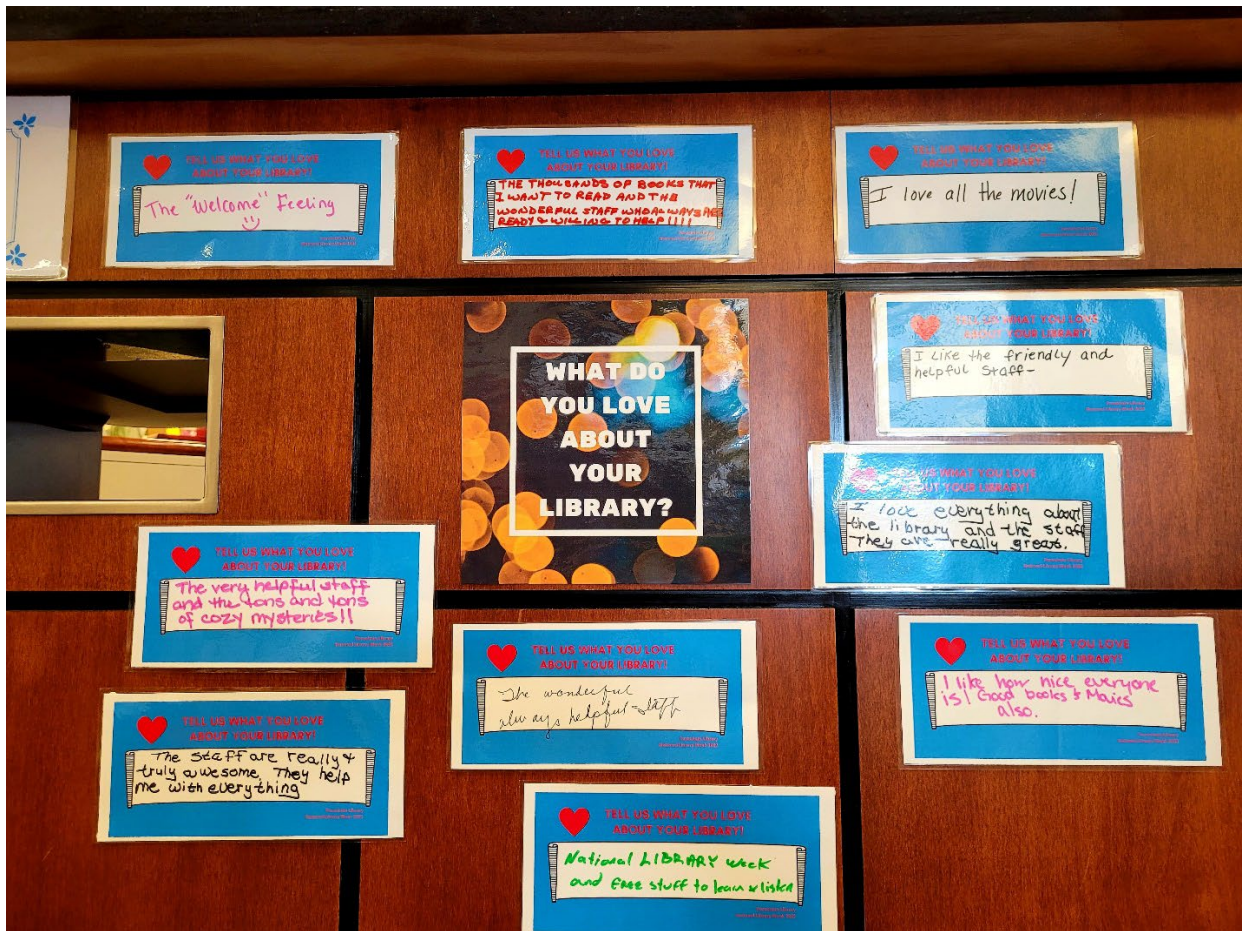 TELL US WHAT YOU LOVE
ABOUT YOUR LIBRARY!
The "Welcome" Feeling
TELL US WHAT YOU LOVE
ABOUT YOUR LIBRARY!
THE THOUSANDS OF BOOKS THAT
I WANT TO READ AND THE
WONDERFUL STAFF WHO ALWAYS ARE
READY & WILLING TO HELP!!!!
TELL US WHAT YOU LOVE
ABOUT YOUR LIBRARY!
I love all the movies!
WHAT DO
YOU LOVE
ABOUT
YOUR
LIBRARY?
TELL US WHAT YOU LOVE
ABOUT YOUR LIBRARY!
I Like the friendly and
helpful Staff-
TELL US WHAT YOU LOVE
ABOUT YOUR LIBRARY!
I love everything about
the library and the staff
They are really great.
TELL US WHAT YOU LOVE
ABOUT YOUR LIBRARY!
The very helpful staff
and the tons and tons
of cozy mysteries!!
TELL US WHAT YOU LOVE
ABOUT YOUR LIBRARY!
The wonderful
always helpful staff
TELL US WHAT YOU LOVE
ABOUT YOUR LIBRARY!
I like how nice everyone
is! Good books & Movies
also.
TELL US WHAT YOU LOVE
ABOUT YOUR LIBRARY!
The Staff are really &
truly awesome. They help
me with everything
TELL US WHAT YOU LOVE
ABOUT YOUR LIBRARY!
National LIBRARY Week
and free stuff to learn & listen